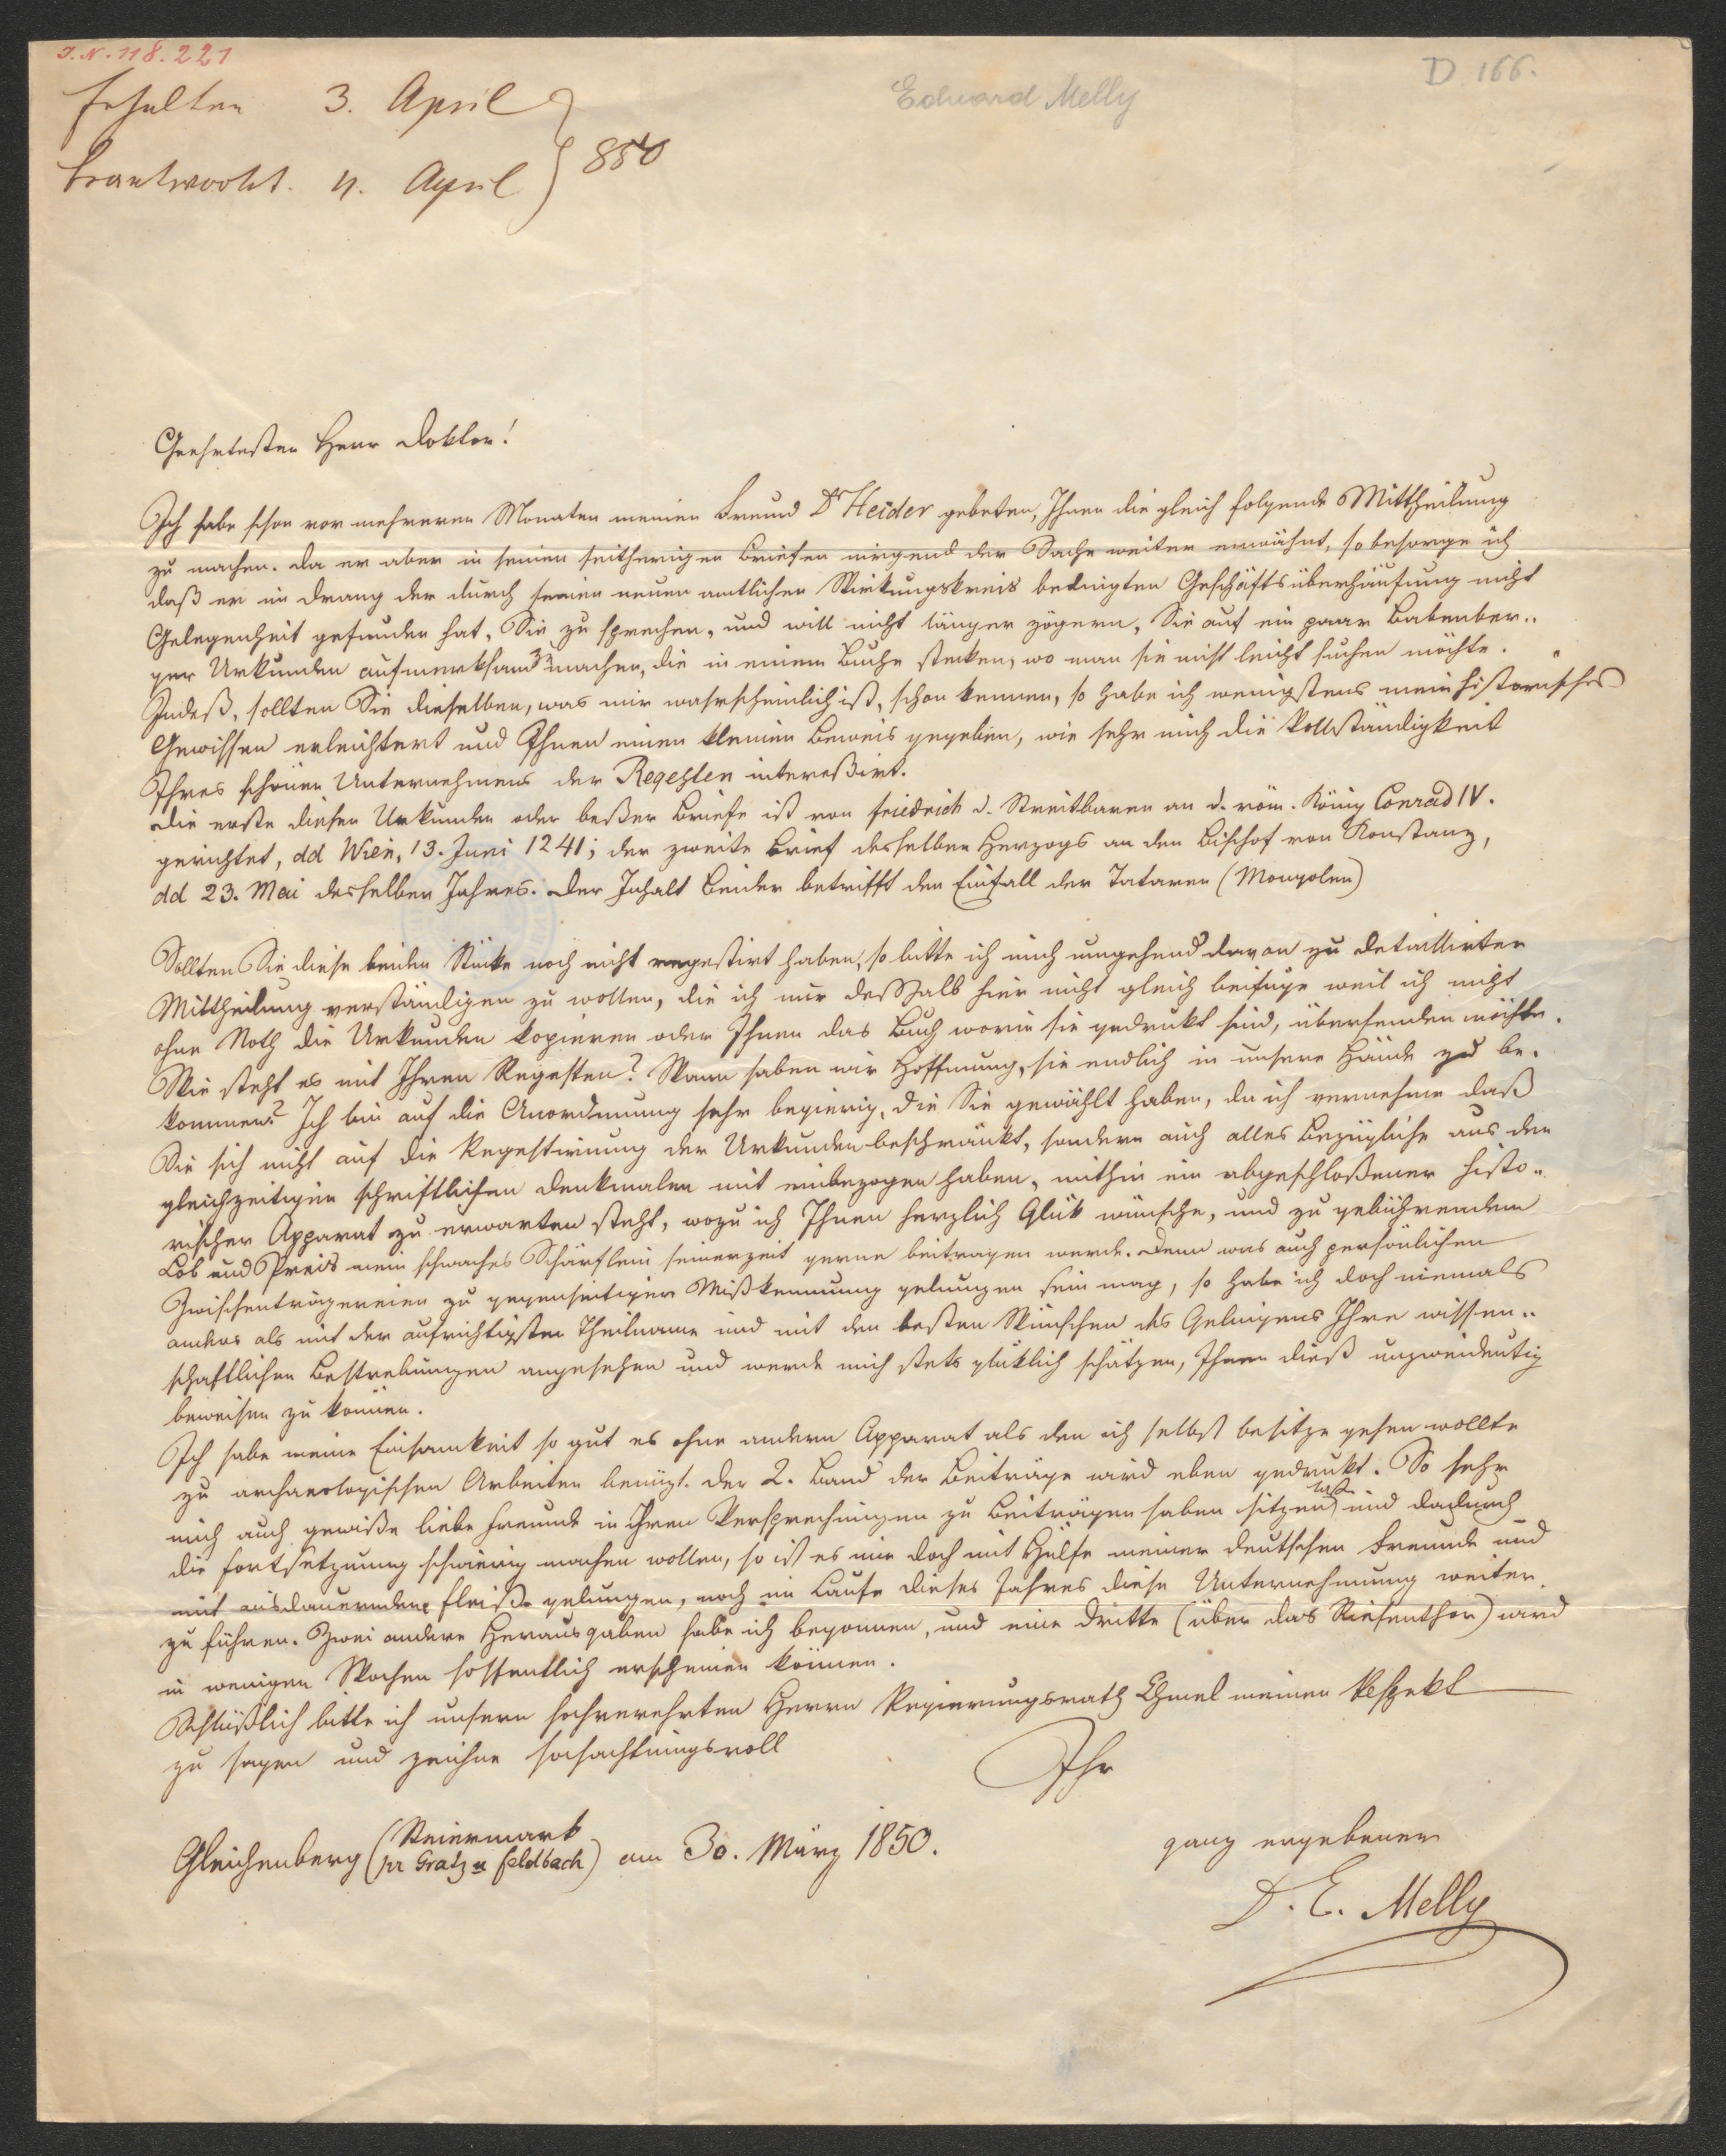 I.N. 118.221
D 166.
Eduard Melly
Erhalten 3. April
beantwortet. 4. April } 850
Geehrtester Herr Doktor!
Ich habe schon vor mehreren Monaten meinen Freund Dr Heider gebeten, Ihnen die gleich folgende Mittheilung
zu machen. Da er aber in seinen seitherigen Briefen nirgend der Sache weiter erwähnt, so besorge ich
daß er im Drang der durch seinen neuen amtlichen Wirkungskreis bedingten Geschäftsüberhäufung nicht
Gelegenheit gefunden hat, Sie zu sprechen, und will nicht länger zögern, Sie auf ein paar Babenber..
ger Urkunden aufmerksam zu machen, die in einem Buche stecken, wo man sie nicht leicht suchen möchte.
Indeß, sollten Sie dieselben, was mir wahrscheinlich ist, schon kennen, so habe ich wenigstens mein historisches
Gewissen erleichtert und Ihnen einen kleinen Beweis gegeben, wie sehr mich die Vollständigkeit
Ihres schönen Unternehmens der Regesten intereßirt.
Die erste dieser Urkunden oder beßer Briefe ist von Friedrich d. Streitbaren an d. röm. König Conrad IV.
gerichtet, dd Wien, 13. Juni 1241; der zweite Brief desselben Herzogs an den Bischof von Konstanz,
dd 23. Mai desselben Jahres. Der Inhalt beider betrifft den Einfall der Tataren (Mongolen)
Sollten Sie diese beiden Stücke noch nicht regestirt haben, so bitte ich mich umgehend davon zu detaillirter
Mittheilung verständigen zu wollen, die ich nur deßhalb hier nicht gleich beifüge weil ich nicht
ohne Noth die Urkunden kopieren oder Ihnen das Buch worin sie gedrukt sind, übersenden möchte.
Wie steht es mit Ihren Regesten? Wann haben wir Hoffnung, sie endlich in unsere Hände zu be-
kommen? Ich bin auf die Anordnung sehr begierig, die Sie gewählt haben, da ich vernehme daß
Sie sich nicht auf die Regestirung der Urkunden beschränkt, sondern auch alles Bezügliche aus den
gleichzeitigen schriftlichen Denkmalen mit einbezogen haben, mithin ein abgeschloßener histo..
rischer Apparat zu erwarten steht, wozu ich Ihnen herzlich Glük wünsche, und zu gebührendem
Lob und Preis mein schwaches Schärflein seinerzeit gerne beitragen werde. Denn was auch persönlichen
Zwischenträgereien zu gegenseitiger Mißkennung gelungen sein mag, so habe ich doch niemals
anders als mit der aufrichtigsten Theilname und mit den besten Wünschen des Gelingens Ihre wissen..
schaftlichen Bestrebungen angesehen und werde mich stets glüklich schätzen, Ihnen dieß unzweideutig
beweisen zu können.
Ich habe meine Einsamkeit so gut es ohne andern Apparat als den ich selbst besitze gehen wollte
zu archaeologischen Arbeiten benüzt. Der 2. Band der Beiträge wird eben gedrukt. So sehr
mich auch gewiße liebe Freunde in ihren Versprechungen zu Beiträgen haben sitzen und dadurch
die Fortsetzung schwierig machen wollen, so ist es mir doch mit Hülfe meiner deutschen Freunde und
mit ausdauerndem Fleiße gelungen, noch im Laufe dieses Jahres diese Unternehmung weiter
zu führen. Zwei andere Herausgaben habe ich begonnen, und eine dritte (über das Riesenthor) wird
in wenigen Wochen hoffentlich erscheinen können.
Schlüßlich bitte ich unsern hochverehrten Herrn Regierungsrath Chmel meinen Respekt
zu sagen und zeichne hochachtungsvoll
Ihr
ganz ergebener
D. E. Melly
Gleichenberg (Steiermark
pr Gratz u Feldbach) am 30. März 1850.